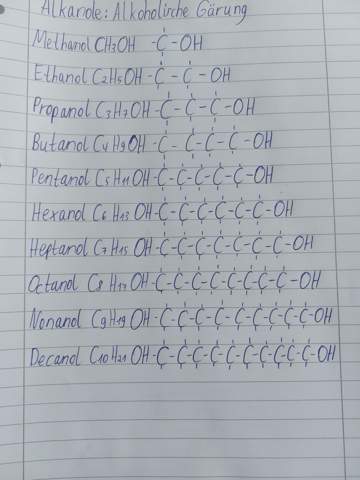 Alkanole: Alkoholische Gärung
Methanol CH₃OH -C-OH
Ethanol C₂H₅OH -C-C-OH
Propanol C₃H₇OH -C-C-C-OH
Butanol C₄H₉OH -C-C-C-C-OH
Pentanol C₅H₁₁OH -C-C-C-C-C-OH
Hexanol C₆H₁₃OH -C-C-C-C-C-C-OH
Heptanol C₇H₁₅OH -C-C-C-C-C-C-C-OH
Octanol C₈H₁₇OH -C-C-C-C-C-C-C-C-OH
Nonanol C₉H₁₉OH -C-C-C-C-C-C-C-C-C-OH
Decanol C₁₀H₂₁OH -C-C-C-C-C-C-C-C-C-C-OH